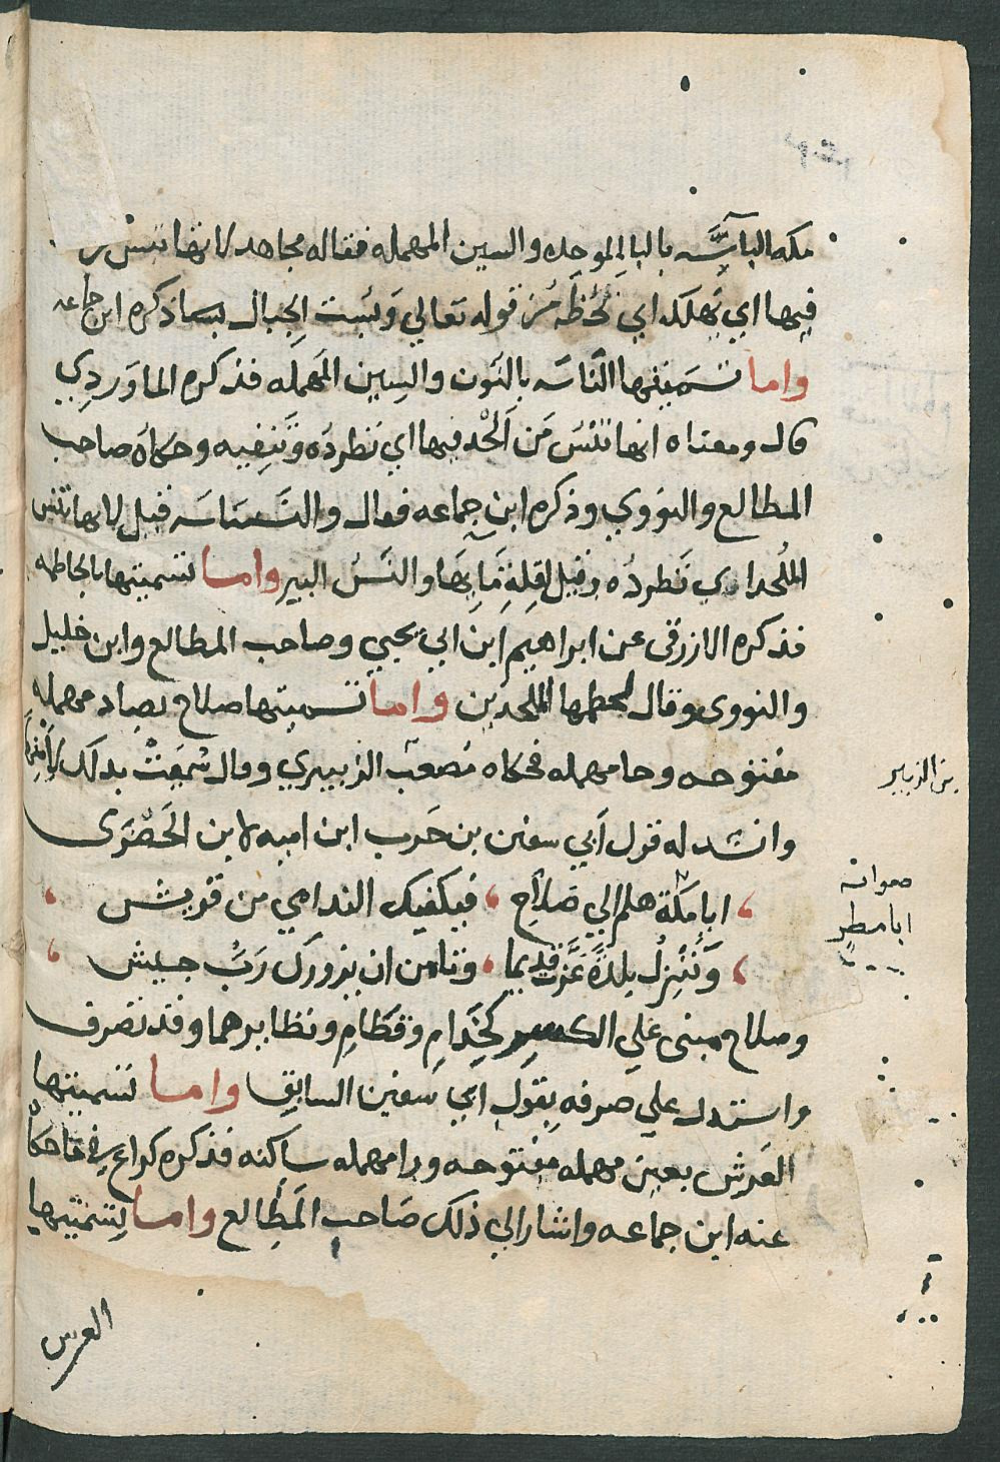 مكه الباسَّه بالبا الموحده والسين المهمله فقاله مجاهد لانها تبس من
فيها اي تهلكه اي تحُطَّه من قوله تعالي وَبُست الجبال بسا ذكره ابن جماعه
واما تسميتها النَّاسَّه بالنون والسِين المهمله فذكره الماوَردِي
قال ومعناه انها تنُسّ مَن اَلْحَد فيها اي تطردَه وَتنفِيه وحكاه صاحب
المطالع والنووي وذكره ابن جماعه فقال والنسَّاسَه قيل لانها تنس
المُلحد اي تَطردُه وقيل لقِلةِ مَايِهَا والنَسُ اليبر واما تسميتها بالحاطمه
فذكره الازرقى عن ابراهيم ابن ابي يحيي وصاحب المطالع وابن خليل
والنووي وقال لحطمها الملحدين واما تسميتها صلاح بصاد مهمله
مفتوحه وحا مهمله فحكاه مُصعَب الزبيري وقال سُمِيَتْ بذلك لاَمْنِها
بن الزبير
وانشد له قول اَبي سفين بن حَرب ابن اميه لابن الحَضْرَمى
ابا مكة هلم الي صَلاَحِ فيكفيك الندامي من قريش
صوابه
ابا مطرٍ
وَتَنْزِلُ بلدَةً عَزَّت قديما وتامن ان يزورك رَبُّ جيش
وصلاح مبنى علي الكسر كحَذَامِ وقطامِ ونظايرهما وقد تصرف
واستدل علي صرفه بقول ابي سفين السابق واما تسميتها
العَرش بعين مهمله مفتوحه ورا مهمله ساكنه فذكره كراع في ما حكاه
عنه ابن جماعه واشار الي ذلك صَاحب المَطالع واما تسميتها
العرس